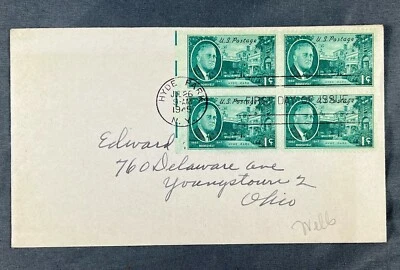 U.S. Postage U.S. Postage
1¢ 1¢
HYDE PARK
JUL 26
9-AM
1945
N.Y.
FIRST DAY OF ISSUE
U.S. Postage U.S. Postage
1¢ 1¢
Edward
760 Delaware ave
Youngstown 2
Ohio
Wells